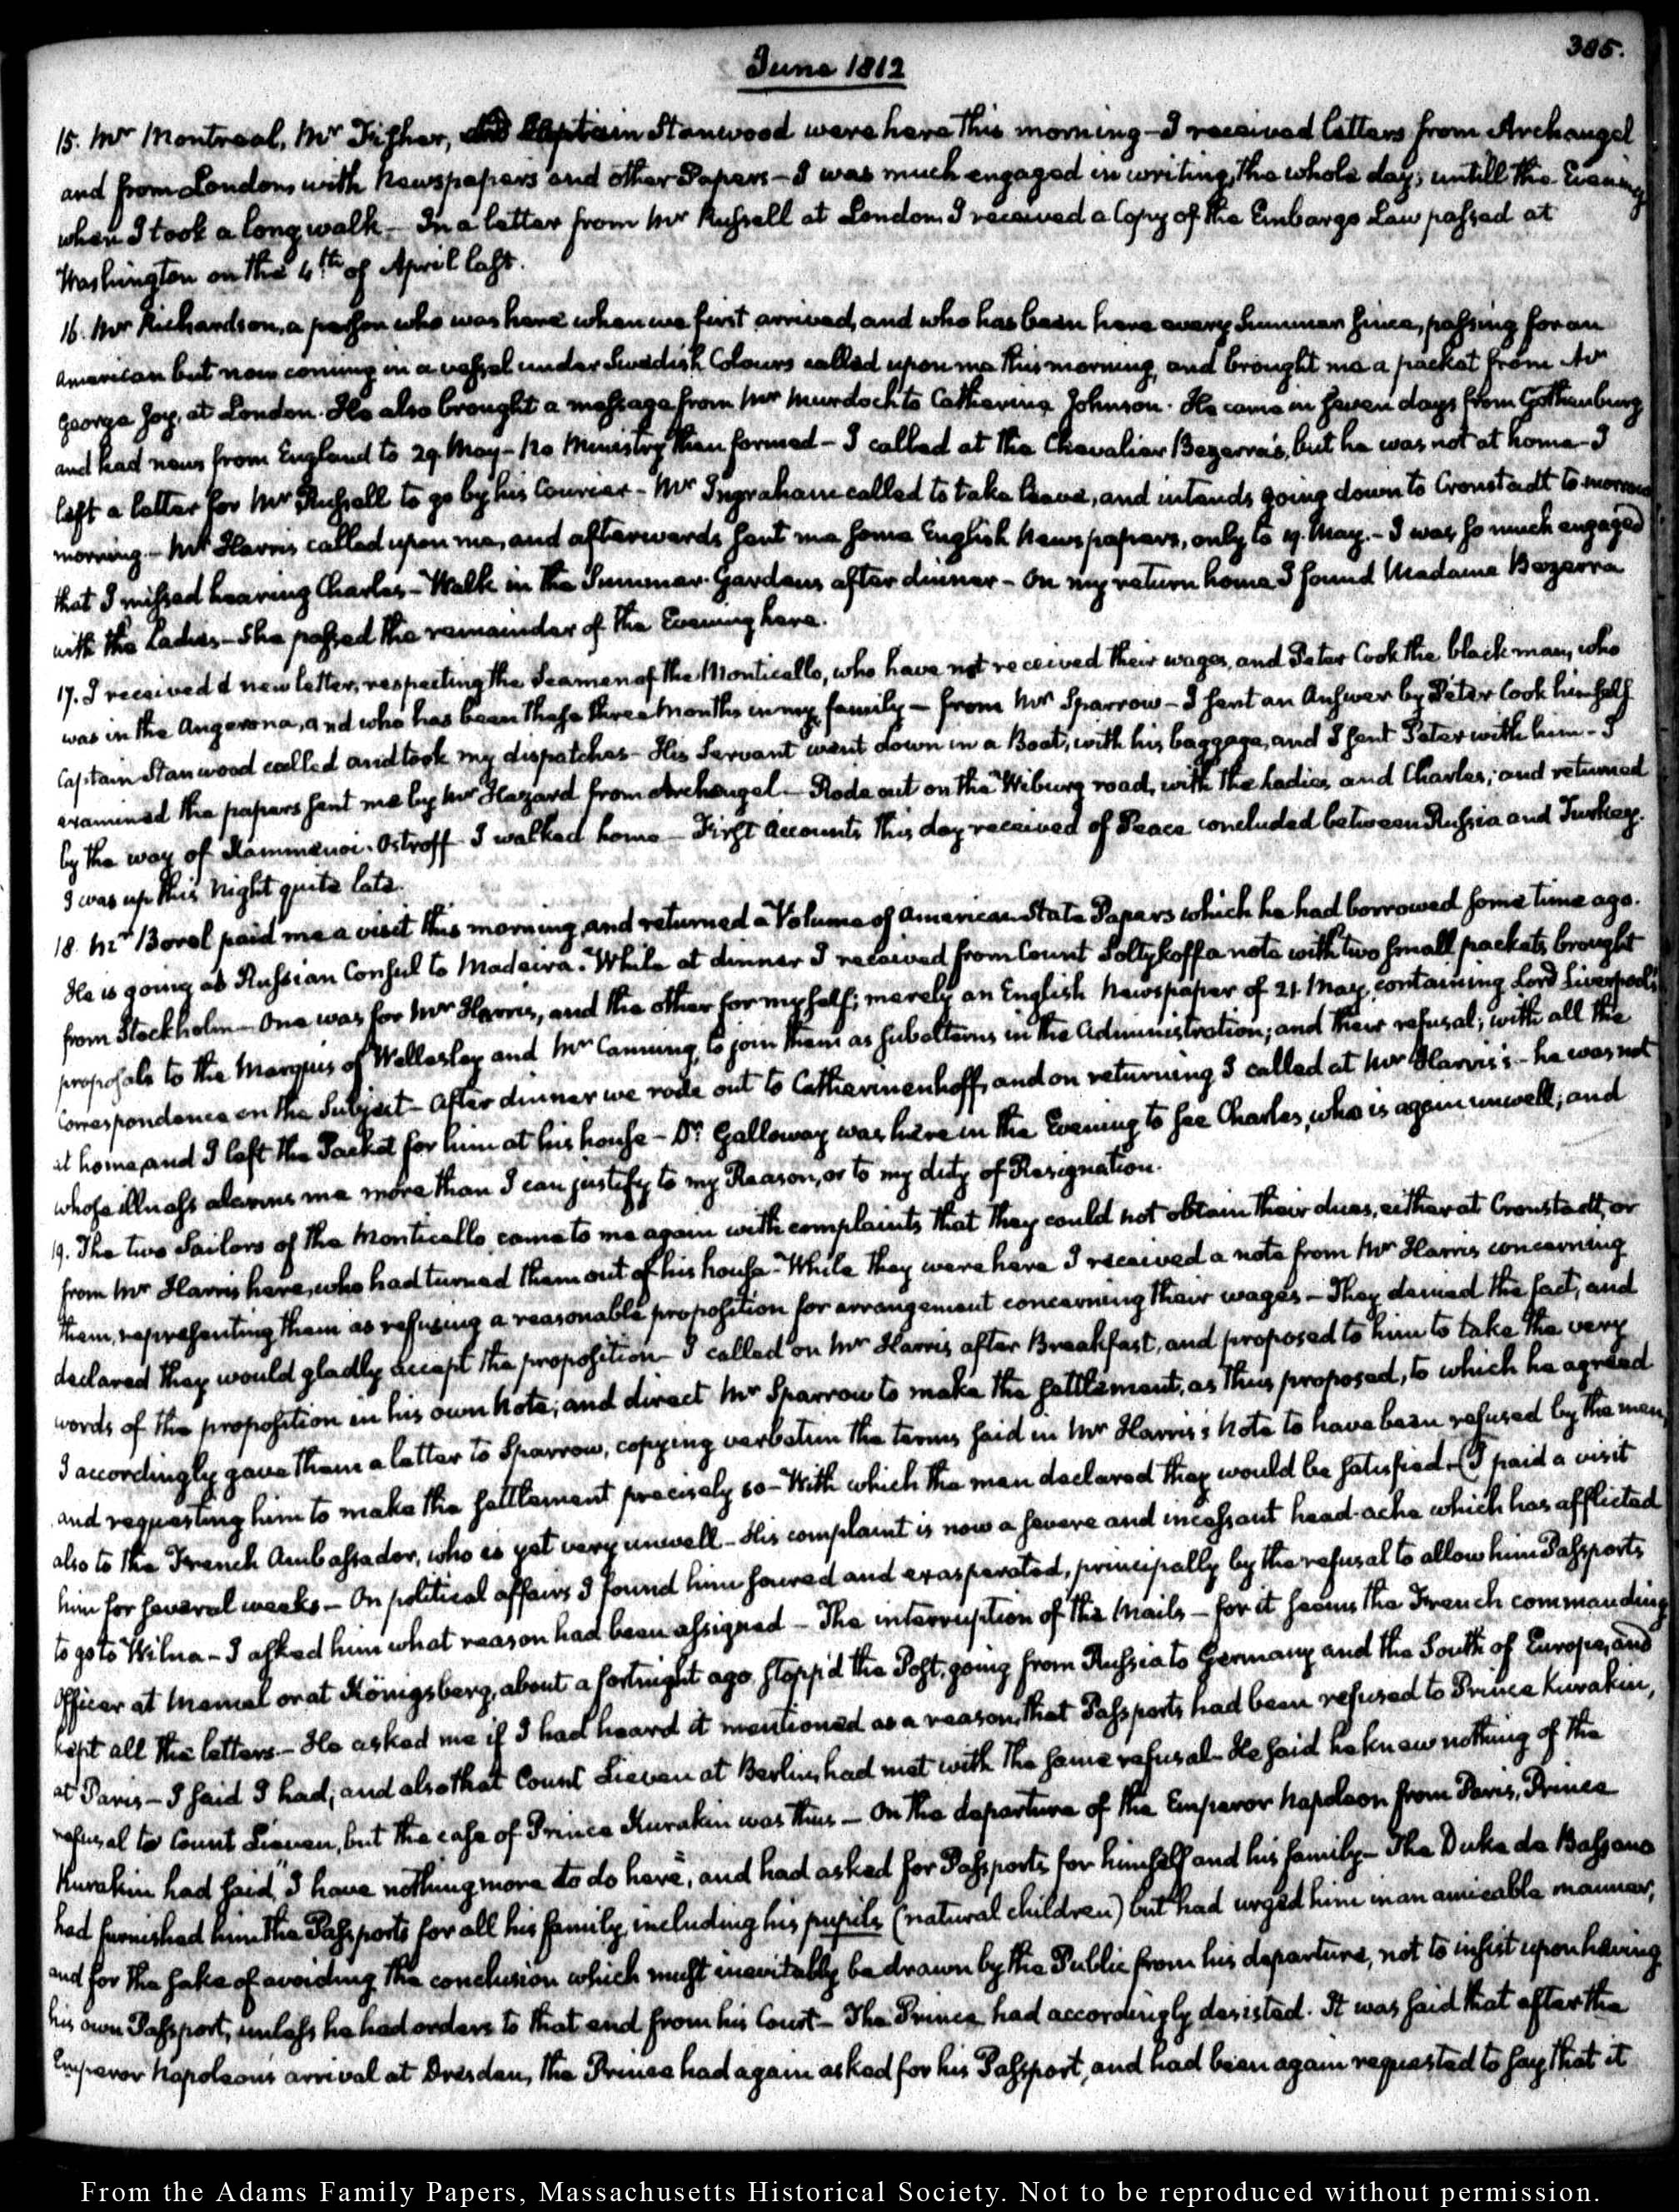 385.
June 1812
15. Mr Montreal, Mr Fisher, and Captain Stanwood were here this morning – I received letters from Archangel
and from London, with Newspapers and other Papers – I was much engaged in writing, the whole day; untill the Evening
when I took a long walk – In a letter from Mr Russell at London I received a Copy of the Embargo Law passed at
Washington on the 4th of April last.
16. Mr Richardson, a person who was here when we first arrived, and who has been here every Summer since, passing for an
American but now coming in a vessel under Swedish Colours called upon me this morning, and brought me a packet from Mr
George Joy, at London. He also brought a message from Mr Murdoch to Catherine Johnson. He came in seven days from Gothenburg
and had news from England to 29. May – No Ministry then formed – I called at the Chevalier Bezerra's, but he was not at home – I
left a letter for Mr Russell to go by his Courier – Mr Ingraham called to take leave, and intends going down to Cronstadt to-morrow
morning – Mr Harris called upon me, and afterwards sent me some English Newspapers, only to 19. May. – I was so much engaged
that I missed hearing Charles – Walk in the Summer-Gardens after dinner – On my return home I found Madame Bezerra
with the Ladies – She passed the remainder of the Evening here.
17. I received a new letter, respecting the Seamen of the Monticello, who have not received their wages, and Peter Cook the black man, who
was in the Angerona, and who has been these three Months in my family – from Mr Sparrow – I sent an Answer by Peter Cook himself
Captain Stanwood called and took my dispatches – His Servant went down in a Boat, with his baggage, and I sent Peter with him – I
examined the papers sent me by Mr Hazard from Archangel – Rode out on the Wiburg road, with the Ladies and Charles; and returned
by the way of Kammenoi-Ostroff – I walked home – First Accounts this day received of Peace concluded between Russia and Turkey.
I was up this Night quite late.
18. Mr Borel paid me a visit this morning, and returned a Volume of American State Papers which he had borrowed some time ago.
He is going as Russian Consul to Madeira. While at dinner I received from Count Soltykoff a note with two small packets brought
from Stockholm – One was for Mr Harris, and the other for myself; merely an English Newspaper of 21. May, containing Lord Liverpool's
proposals to the Marquis of Wellesley and Mr Canning, to join them as subalterns in the Administration; and their refusal; with all the
Correspondence on the Subject – After dinner we rode out to Catherinenhoff, and on returning I called at Mr Harris's – he was not
at home, and I left the Packet for him at his house – Dr Galloway was here in the Evening to see Charles, who is again unwell; and
whose illness alarms me more than I can justify to my Reason, or to my duty of Resignation.
19. The two Sailors of the Monticello came to me again with complaints that they could not obtain their dues, either at Cronstadt, or
from Mr Harris here, who had turned them out of his house – While they were here I received a note from Mr Harris concerning
them, representing them as refusing a reasonable proposition for arrangement concerning their wages – They denied the fact, and
declared they would gladly accept the proposition – I called on Mr Harris after Breakfast, and proposed to him to take the very
words of the proposition in his own Note; and direct Mr Sparrow to make the settlement, as thus proposed, to which he agreed
I accordingly gave them a letter to Sparrow, copying verbatim the terms said in Mr Harris's Note to have been refused by the men,
and requesting him to make the settlement precisely so – With which the men declared they would be satisfied – (I paid a visit
also to the French Ambassador, who is yet very unwell – His complaint is now a severe and incessant head-ache which has afflicted
him for several weeks – On political affairs I found him soured and exasperated, principally by the refusal to allow him Passports
to go to Wilna – I asked him what reason had been assigned – The interruption of the Mails – for it seems the French commanding
Officer at Memel or at Königsberg, about a fortnight ago, stopp'd the Post, going from Russia to Germany and the South of Europe, and
kept all the letters – He asked me if I had heard it mentioned as a reason, that Passports had been refused to Prince Kurakin,
at Paris – I said I had; and also that Count Lieven at Berlin, had met with the same refusal – He said he knew nothing of the
refusal to Count Lieven, but the case of Prince Kurakin was thus – On the departure of the Emperor Napoleon from Paris, Prince
Kurakin had said, "I have nothing more to do here", and had asked for Passports for himself and his family – The Duke de Bassano
had furnished him the Passports for all his family, including his pupils (natural children) but had urged him in an amicable manner,
and for the sake of avoiding the conclusion which must inevitably be drawn by the Public from his departure, not to insist upon having
his own Passport, unless he had orders to that end from his Court – The Prince had accordingly desisted. It was said that after the
Emperor Napoleon's arrival at Dresden, the Prince had again asked for his Passport, and had been again requested to say that it
From the Adams Family Papers, Massachusetts Historical Society. Not to be reproduced without permission.